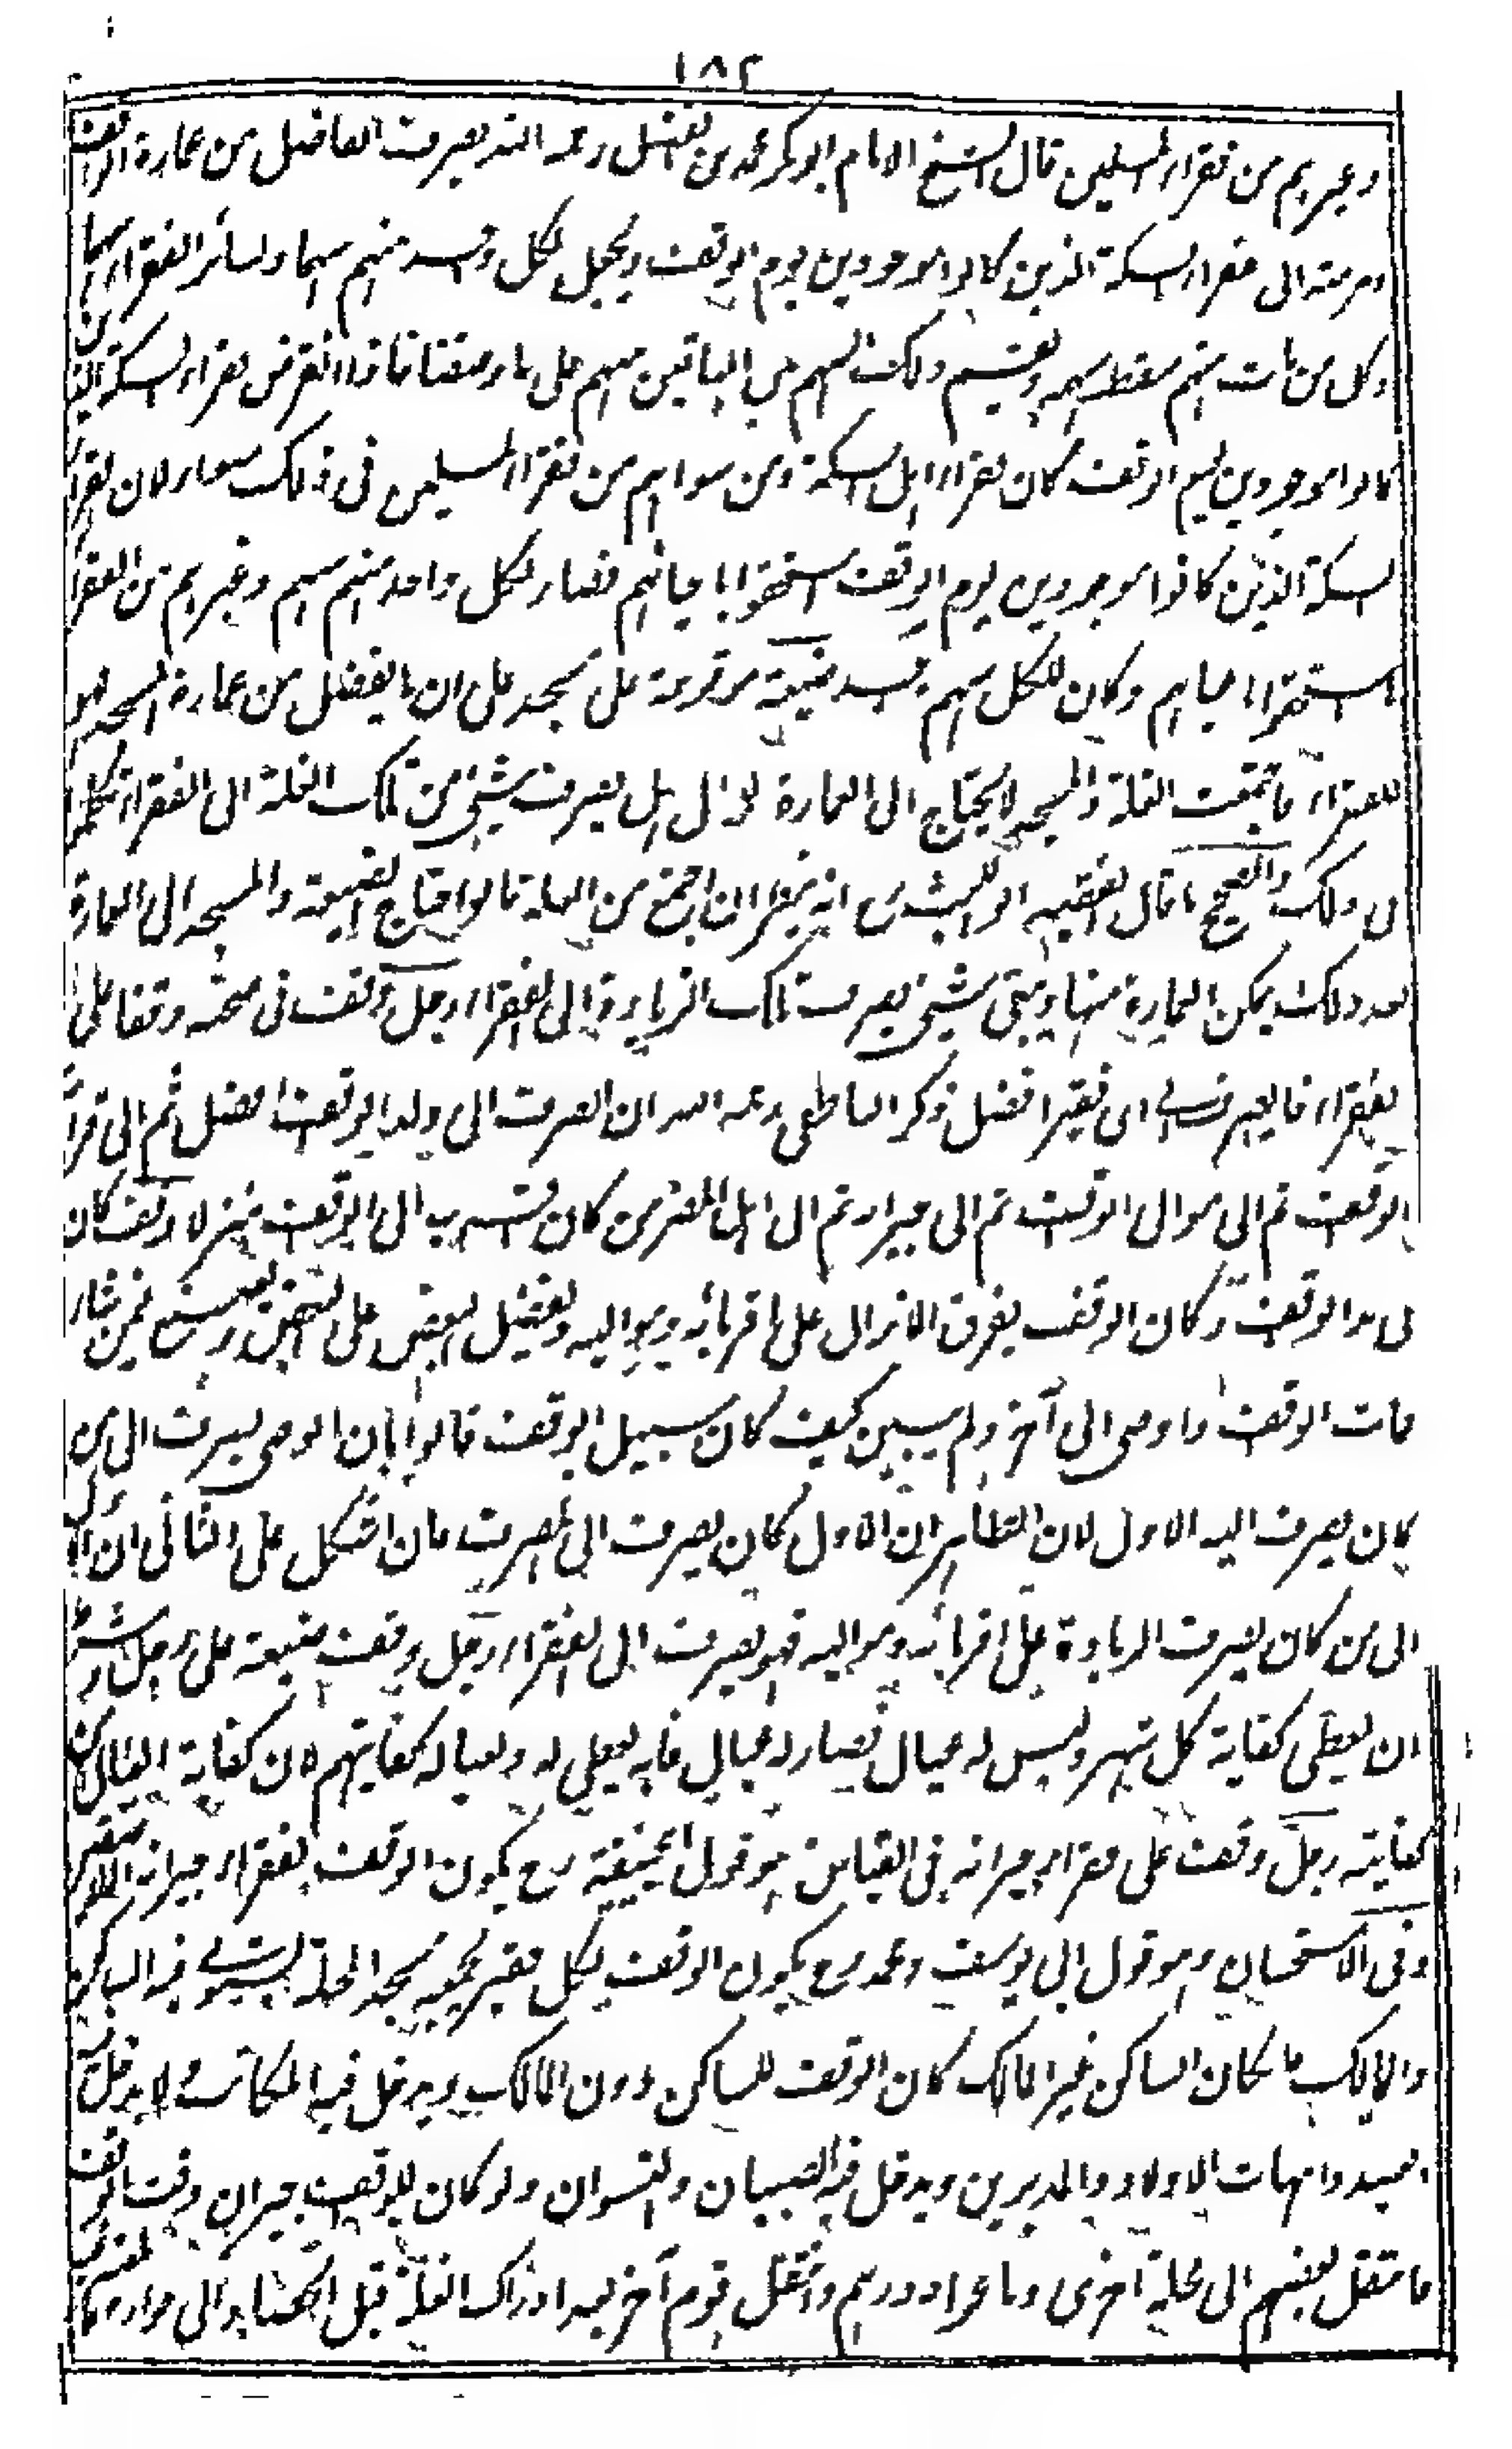 ١٨٢
وغيرهم من فقراء المسلمين قال الشيخ الامام ابو بكر محمد بن الفضل رحمه الله يصرف الفاضل من عمارة الوقف
ومرمته الى فقراء السكة الذين كانوا موجودين يوم الوقف ويجعل لكل واحد منهم سهما ولسائر الفقراء سهما
وكل من مات منهم سقط سهمه ويقسم ذلك السهم بين الباقين منهم على ما وصفنا فاذا انقرض فقراء السكة الذين
كانوا موجودين يوم الوقف كان فقراء اهل السكة ومن سواهم من فقراء المسلمين في ذلك سواء لان فقراء
السكة الذين كانوا موجودين يوم الوقف استحقوا باعيانهم فصار لكل واحد منهم سهم وغيرهم من الفقراء
استحقوا باعيانهم وكان للكل سهم ضيعة موقوفة على مسجد على ان ما يفضل من عمارة المسجد فهو
للفقراء فاجتمعت الغلة والمسجد لا يحتاج الى العمارة للحال هل يصرف شيء من تلك الغلة الى الفقراء تكلموا
في ذلك والصحيح ما قال الفقيه ابو الليث رح انه ينظر ان اجتمع من الغلة ما لو احتاج الضيعة والمسجد الى العمارة
بعد ذلك يمكن العمارة منها ويبقى شيء يصرف تلك الزيادة الى الفقراء رجل وقف في صحته وقفا على
الفقراء فالصرف الى اي فقير افضل ذكر الناطفي رحمه الله ان الصرف الى ولد الوقف افضل ثم الى قرابة
الوقف ثم الى موالي الوقف ثم الى جيرانه ثم الى اهل المصر من كان اقرب الى الوقف منزلا وقف كان
في يد الوقف وكان الوقف يفرق الانزال على اقربائه ومواليه ويفضل البعض على البعض ويضع فيمن شاء
مات الوقف واوصى الى آخر ولم يبين كيف كان سبيل الوقف قالوا بان الوصي يصرف الى من
كان يصرف اليه الاول لان الظاهر ان الاول كان يصرف الى المصرف فان اشكل على الثاني ان الاول
الى من كان يصرف الزيادة على اقربائه ومواليه فهو يصرف الى الفقراء رجل وقف ضيعة على رجل وشرط
ان يعطى كفاية كل شهر وليس له عيال فصار له عيال فانه يعطى له ولعياله كفايتهم لان كفاية العيال من
كفايته رجل وقف على فقراء جيرانه في القياس وهو قول ابي حنيفة رح يكون الوقف لفقراء جيرانه الملاصقين
وفي الاستحسان وهو قول ابي يوسف ومحمد رح يكون الوقف لكل فقير يجمعه مسجد المحلة يستوي فيه الساكن
والمالك فان كان الساكن غير المالك كان الوقف للساكن دون المالك ويدخل فيه المكاتب ولا يدخل فيه
العبيد وامهات الاولاد والمدبرين ويدخل فيه الصبيان والنسوان ولو كان للوقف جيران وقت الوقف
فانتقل بعضهم الى محلة اخرى وباعوا دورهم وانتقل قوم آخر بعد ادراك الغلة قبل الحصاد الى جواره